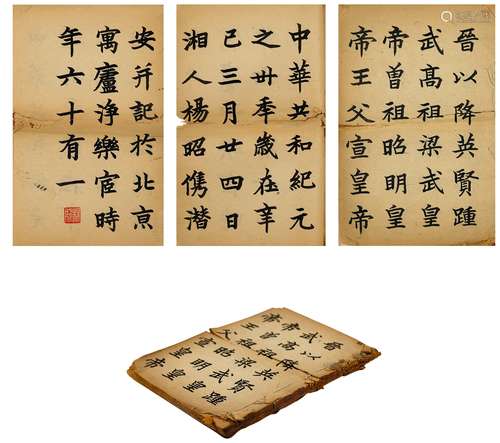 晉以降英賢踵
武髙祖梁武皇
帝曾祖昭明皇
帝王父宣皇帝
中華共和紀元
之卅秊歲在辛
巳三月廿四日
湘人楊昭儁潛
安并記於北亰
寓廬淨樂宧時
年六十有一
晉以降英賢踵
武髙祖梁武皇
帝曾祖昭明皇
帝王父宣皇帝